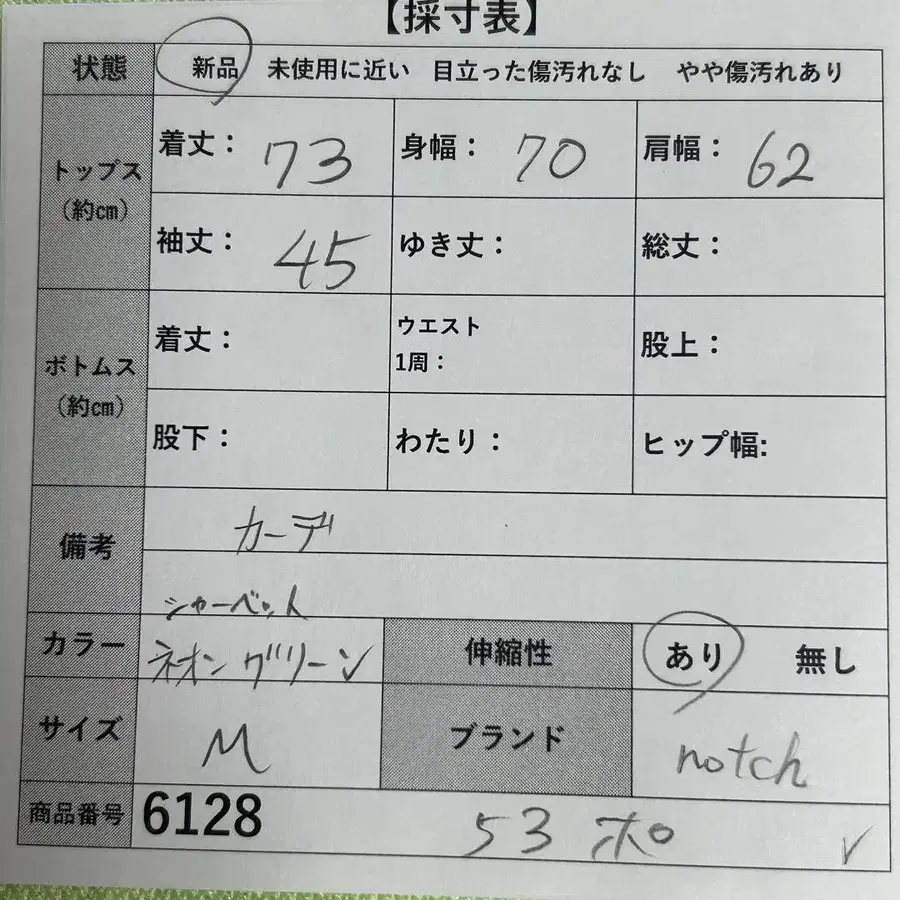 【採寸表】
状態 新品 未使用に近い 目立った傷汚れなし やや傷汚れあり
トップス（約cm） 着丈：73 身幅：70 肩幅：62
袖丈：45 ゆき丈： 総丈：
ボトムス（約cm） 着丈： ウエスト1周： 股上：
股下： わたり： ヒップ幅:
備考 カーデ
シャーベット
カラー ネオングリーン 伸縮性 あり 無し
サイズ M ブランド notch
商品番号 6128 53 ポ